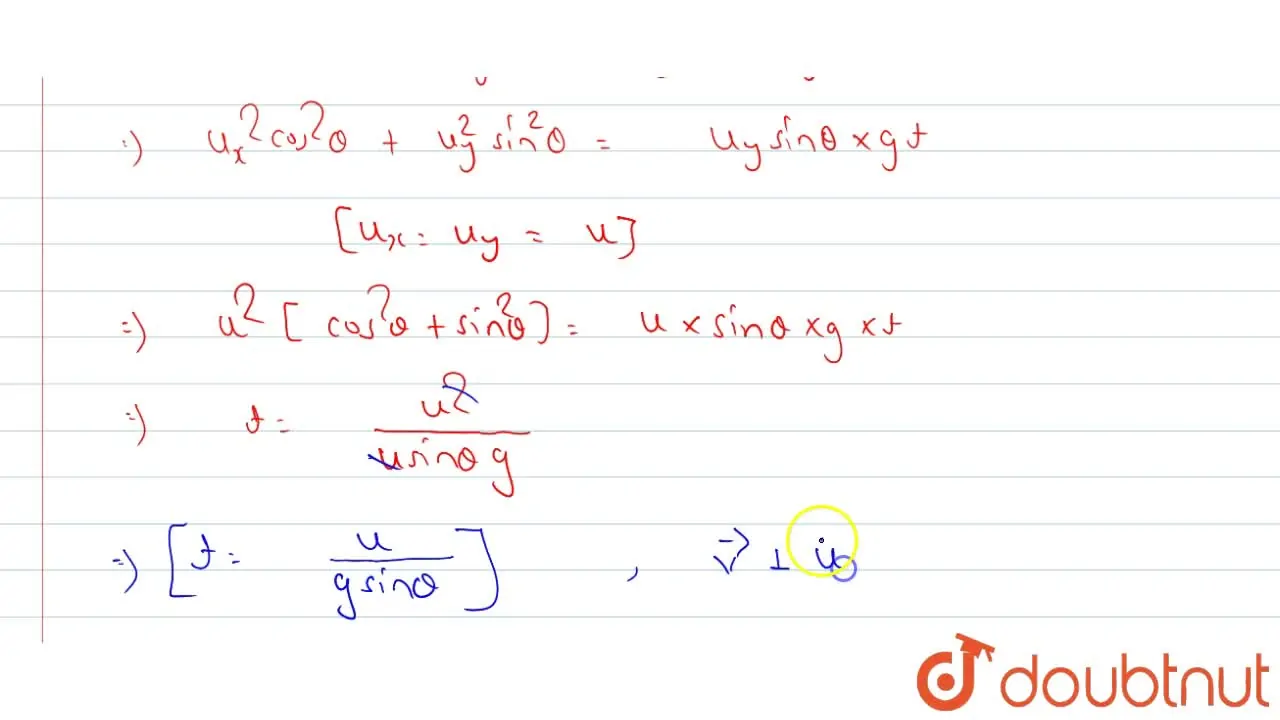 =) uₓ² cos²θ + u_y² sin²θ = u_y sinθ × g t
[uₓ = u_y = u]
=) u² [ cos²θ + sin²θ ] = u × sinθ × g × t
=) t = u² / u sinθ g
=) [ t = u / g sinθ ] , v⃗ ⊥ u
doubtnut